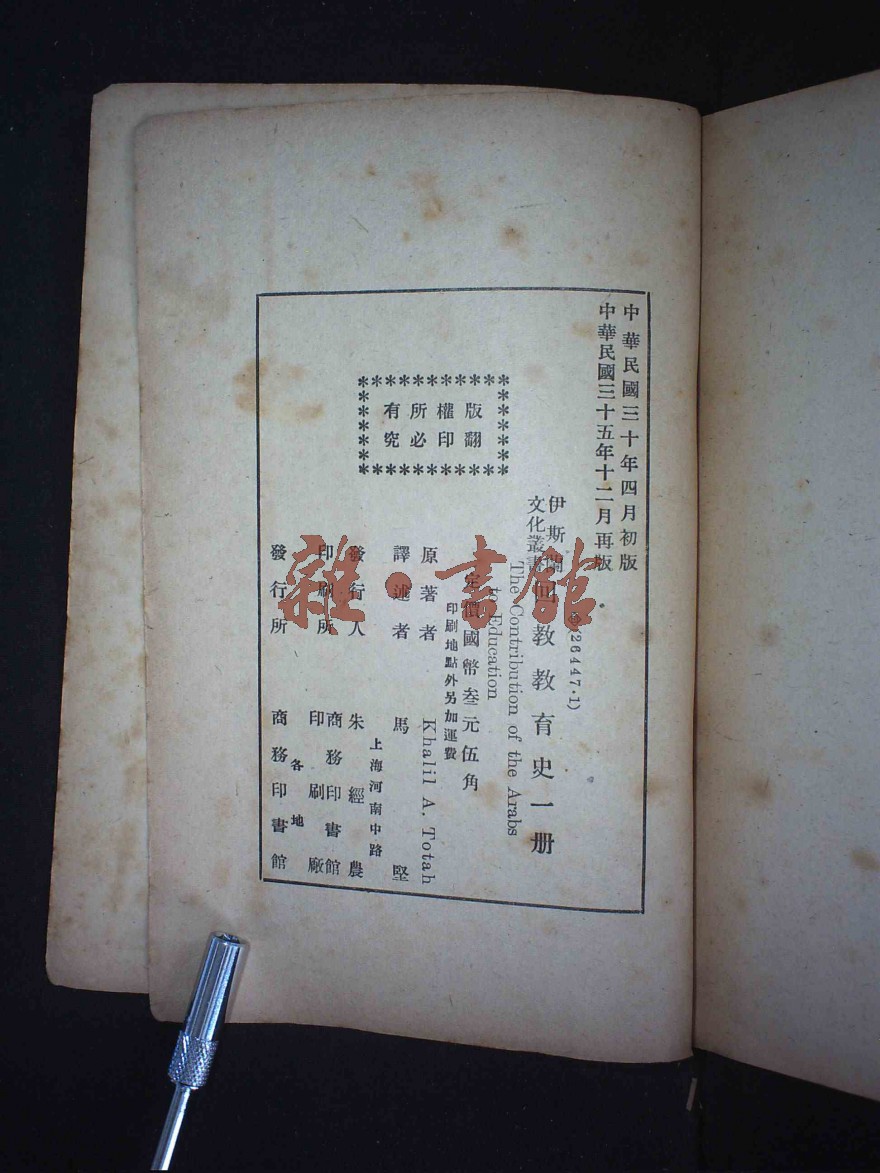 中華民國三十年四月初版
中華民國三十五年十二月再版
(26447·1)
伊斯蘭
文化叢書
回教教育史一册
The Contribution of the Arabs
to Education
定價國幣叁元伍角
印刷地點外另加運費
版權所有
翻印必究
原著者 Khalil A. Totah
譯述者 馬堅
上海河南中路
發行人 朱經農
印刷所 商務印書館
印刷廠
各地
發行所 商務印書館
雜·書館